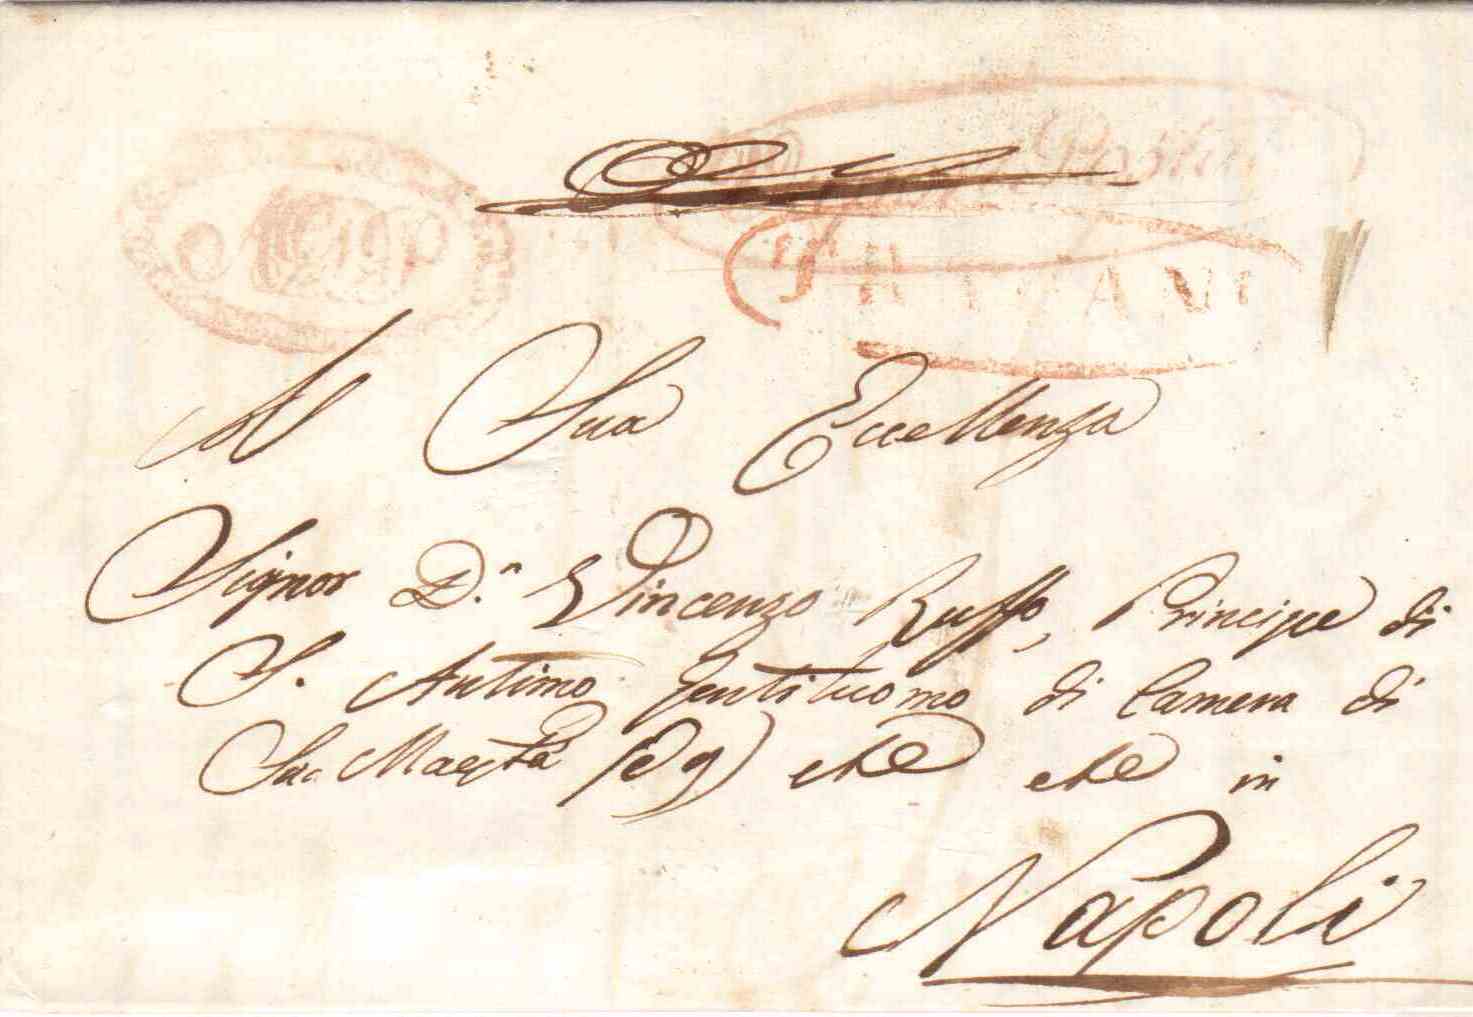 Postin
TRIVANO
A Sua Eccellenza
Signor D.n Vincenzo Ruffo, Principe di
S. Antimo Gentiluomo di Camera di
Sua Maestà (D g) etc etc in
Napoli